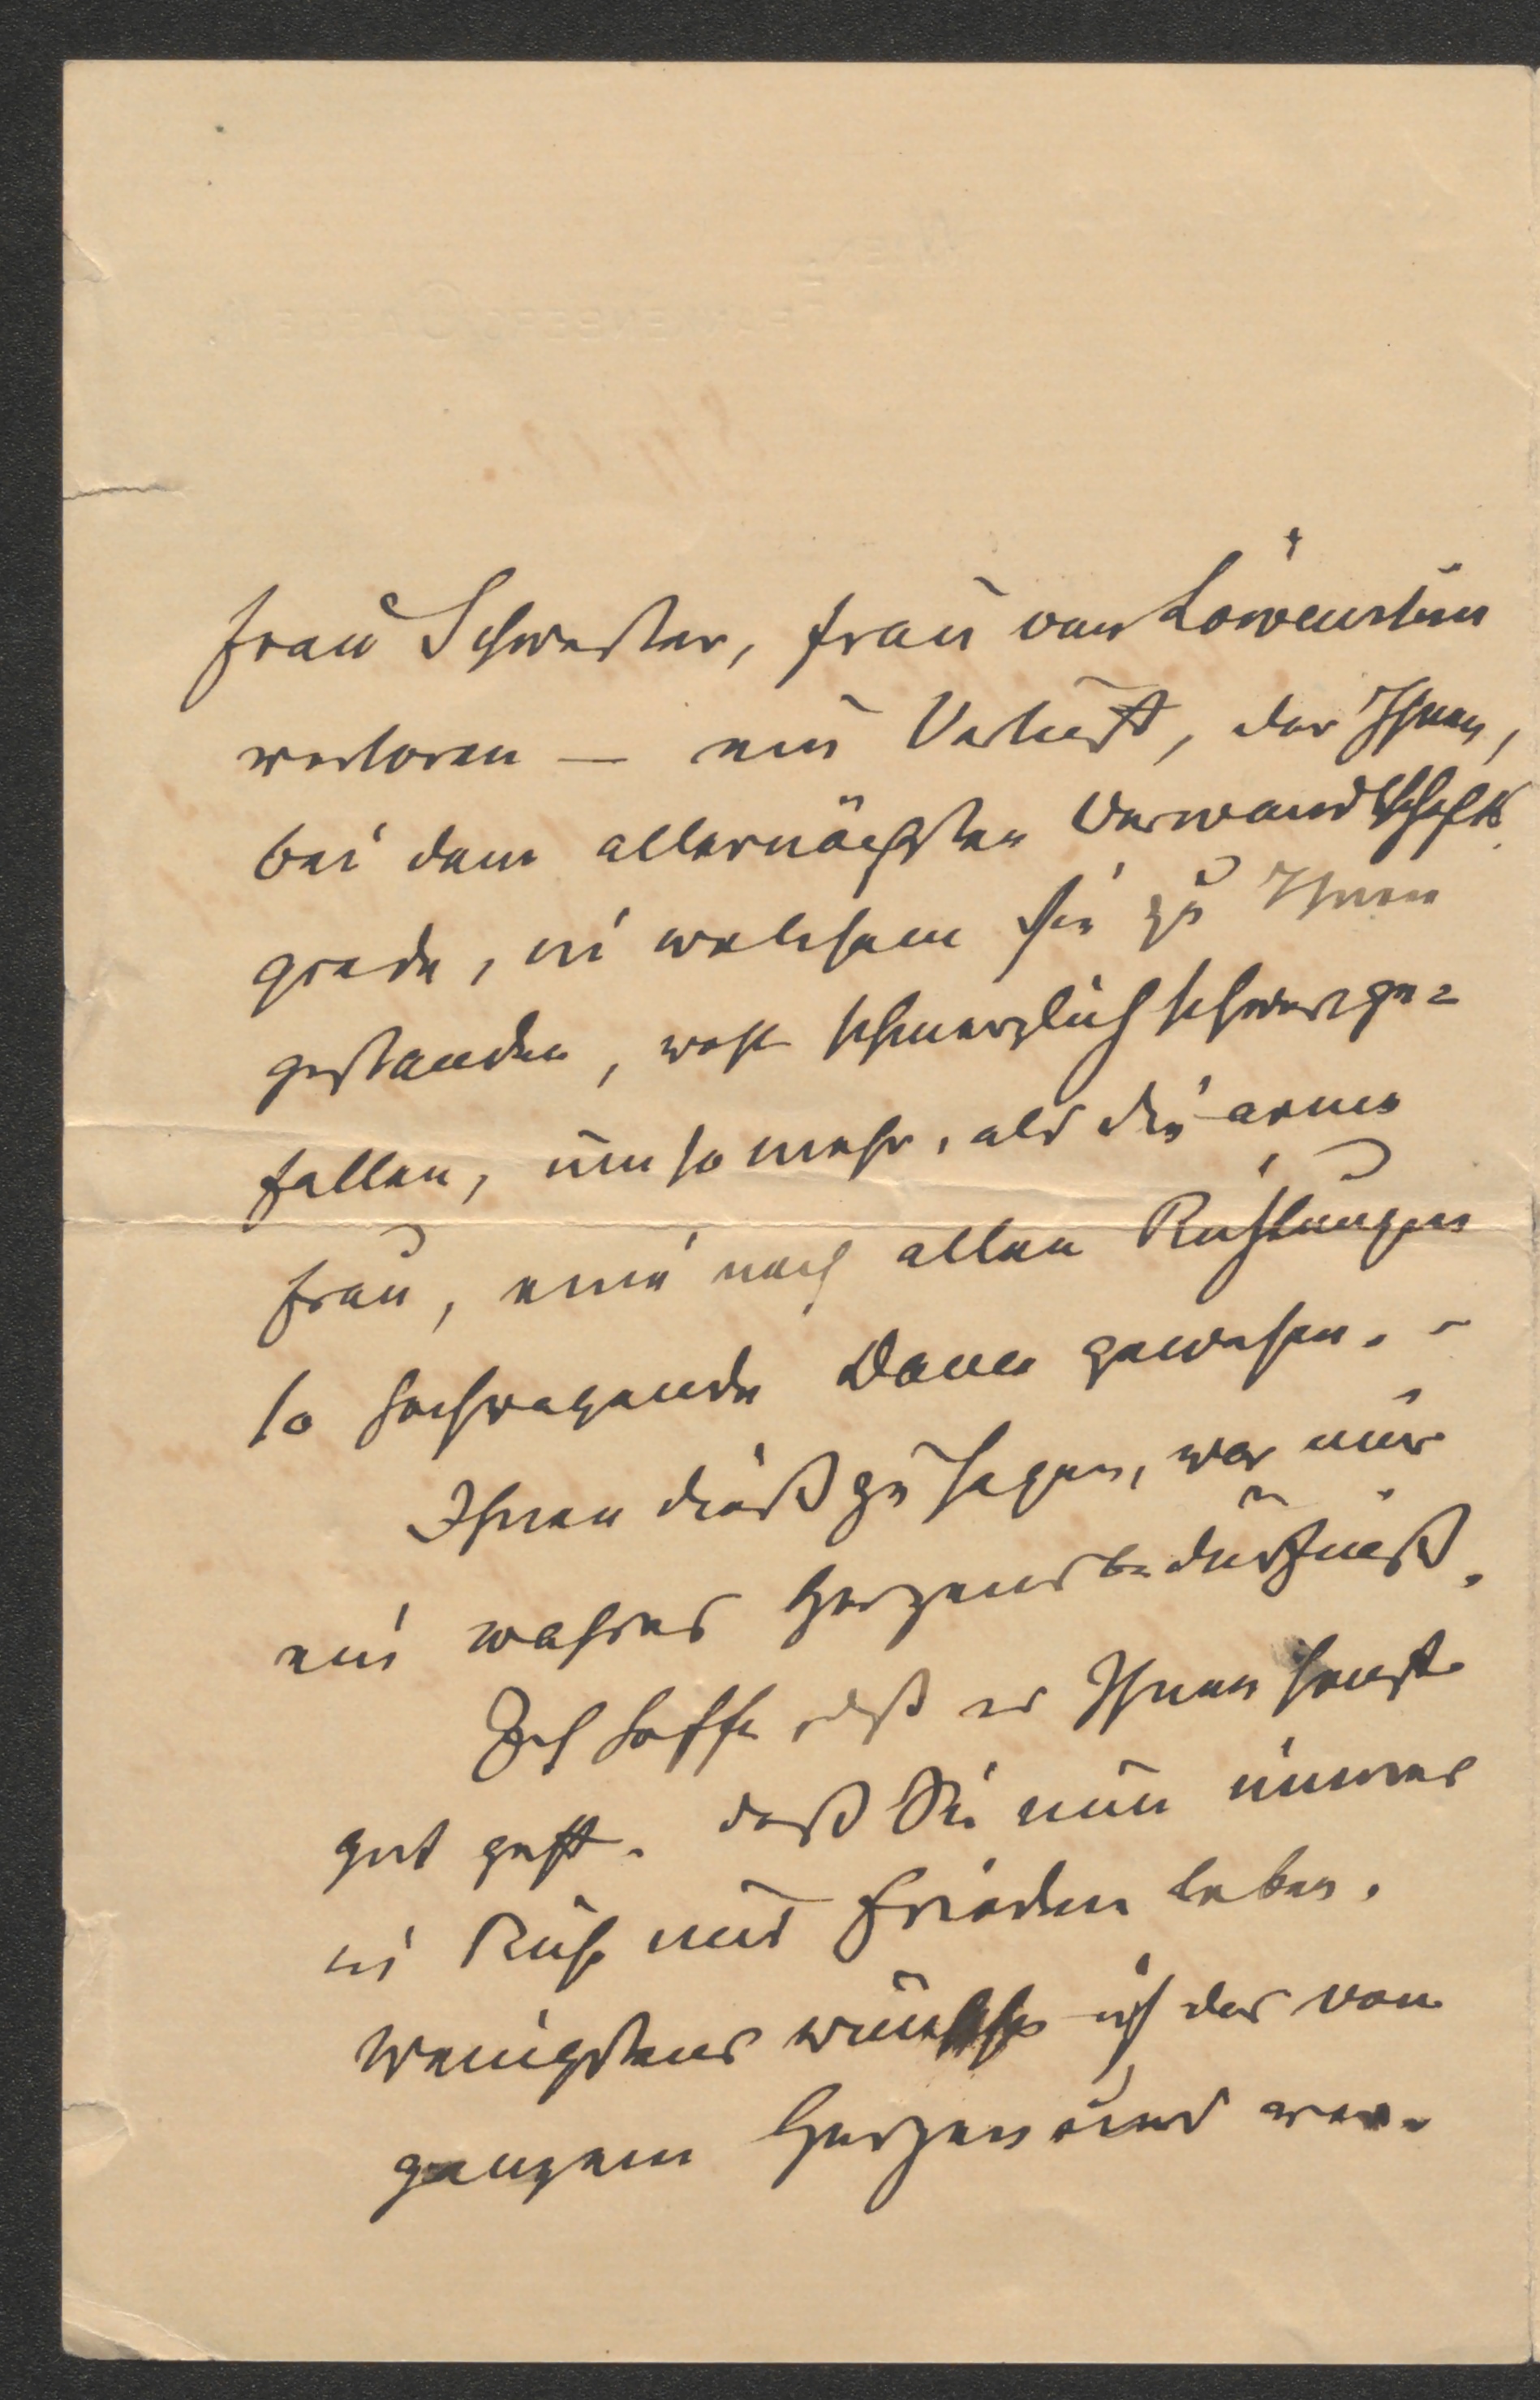 Frau Schwester, Frau von Löwenstein
verloren — ein Verlust, der Ihnen,
bei dem allernächsten Verwandtschafts
grade, in welchem sie zu Ihnen
gestanden, wohl schmerzlich schwer ge=
fallen, um so mehr, als die arme
Frau, eine nach allen Richtungen
so hochragende Dame gewesen. –
Ihnen dieß zu sagen, war mir
ein wahres Herzensbedürfniß.
Ich hoffe, daß es Ihnen sonst
gut geht. daß Sie nun immer
in Ruhe und Frieden leben.
Wenigstens wünsche ich das von
ganzem Herzen und